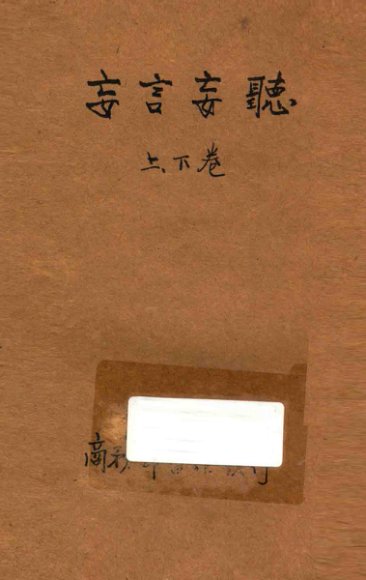 妄言妄聽
上下卷
商務